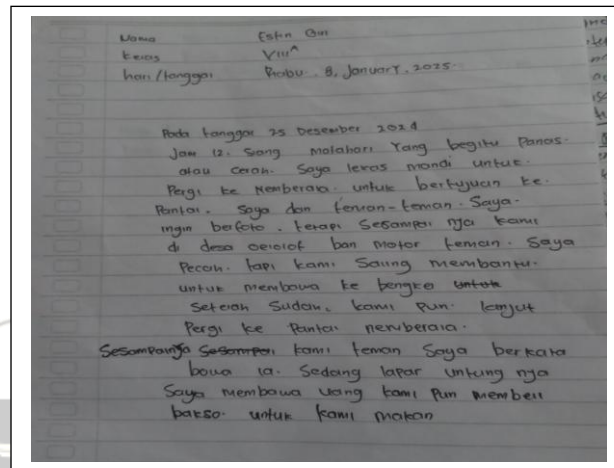 Nama Estin Bui
Keras VIII A
hari/tanggar Rabu. 8, January, 2025.
Pada tanggar 25 Desember 2024
Jam 12. Siang matahari Yang begitu Panas.
atau cerah. Saya leras mandi untuk.
Pergi ke Nemberala. untuk bertujuan ke.
Pantai. Saya dan teman-teman. Saya.
ingin berfoto. tetapi Sesampai nja kami
di desa oelolot ban motor teman. Saya
Pecah. tapi kami Saling membantu.
untuk membawa ke bengke untuk
Seterah Sudah, kami pun. lanjut
Pergi ke Pantai nemberala.
Sesampainja Sesampai kami teman Saya berkata
bawa ia. Sedang lapar untung nja
Saya membawa uang kami Pun membeli
bakso. untuk kami makan